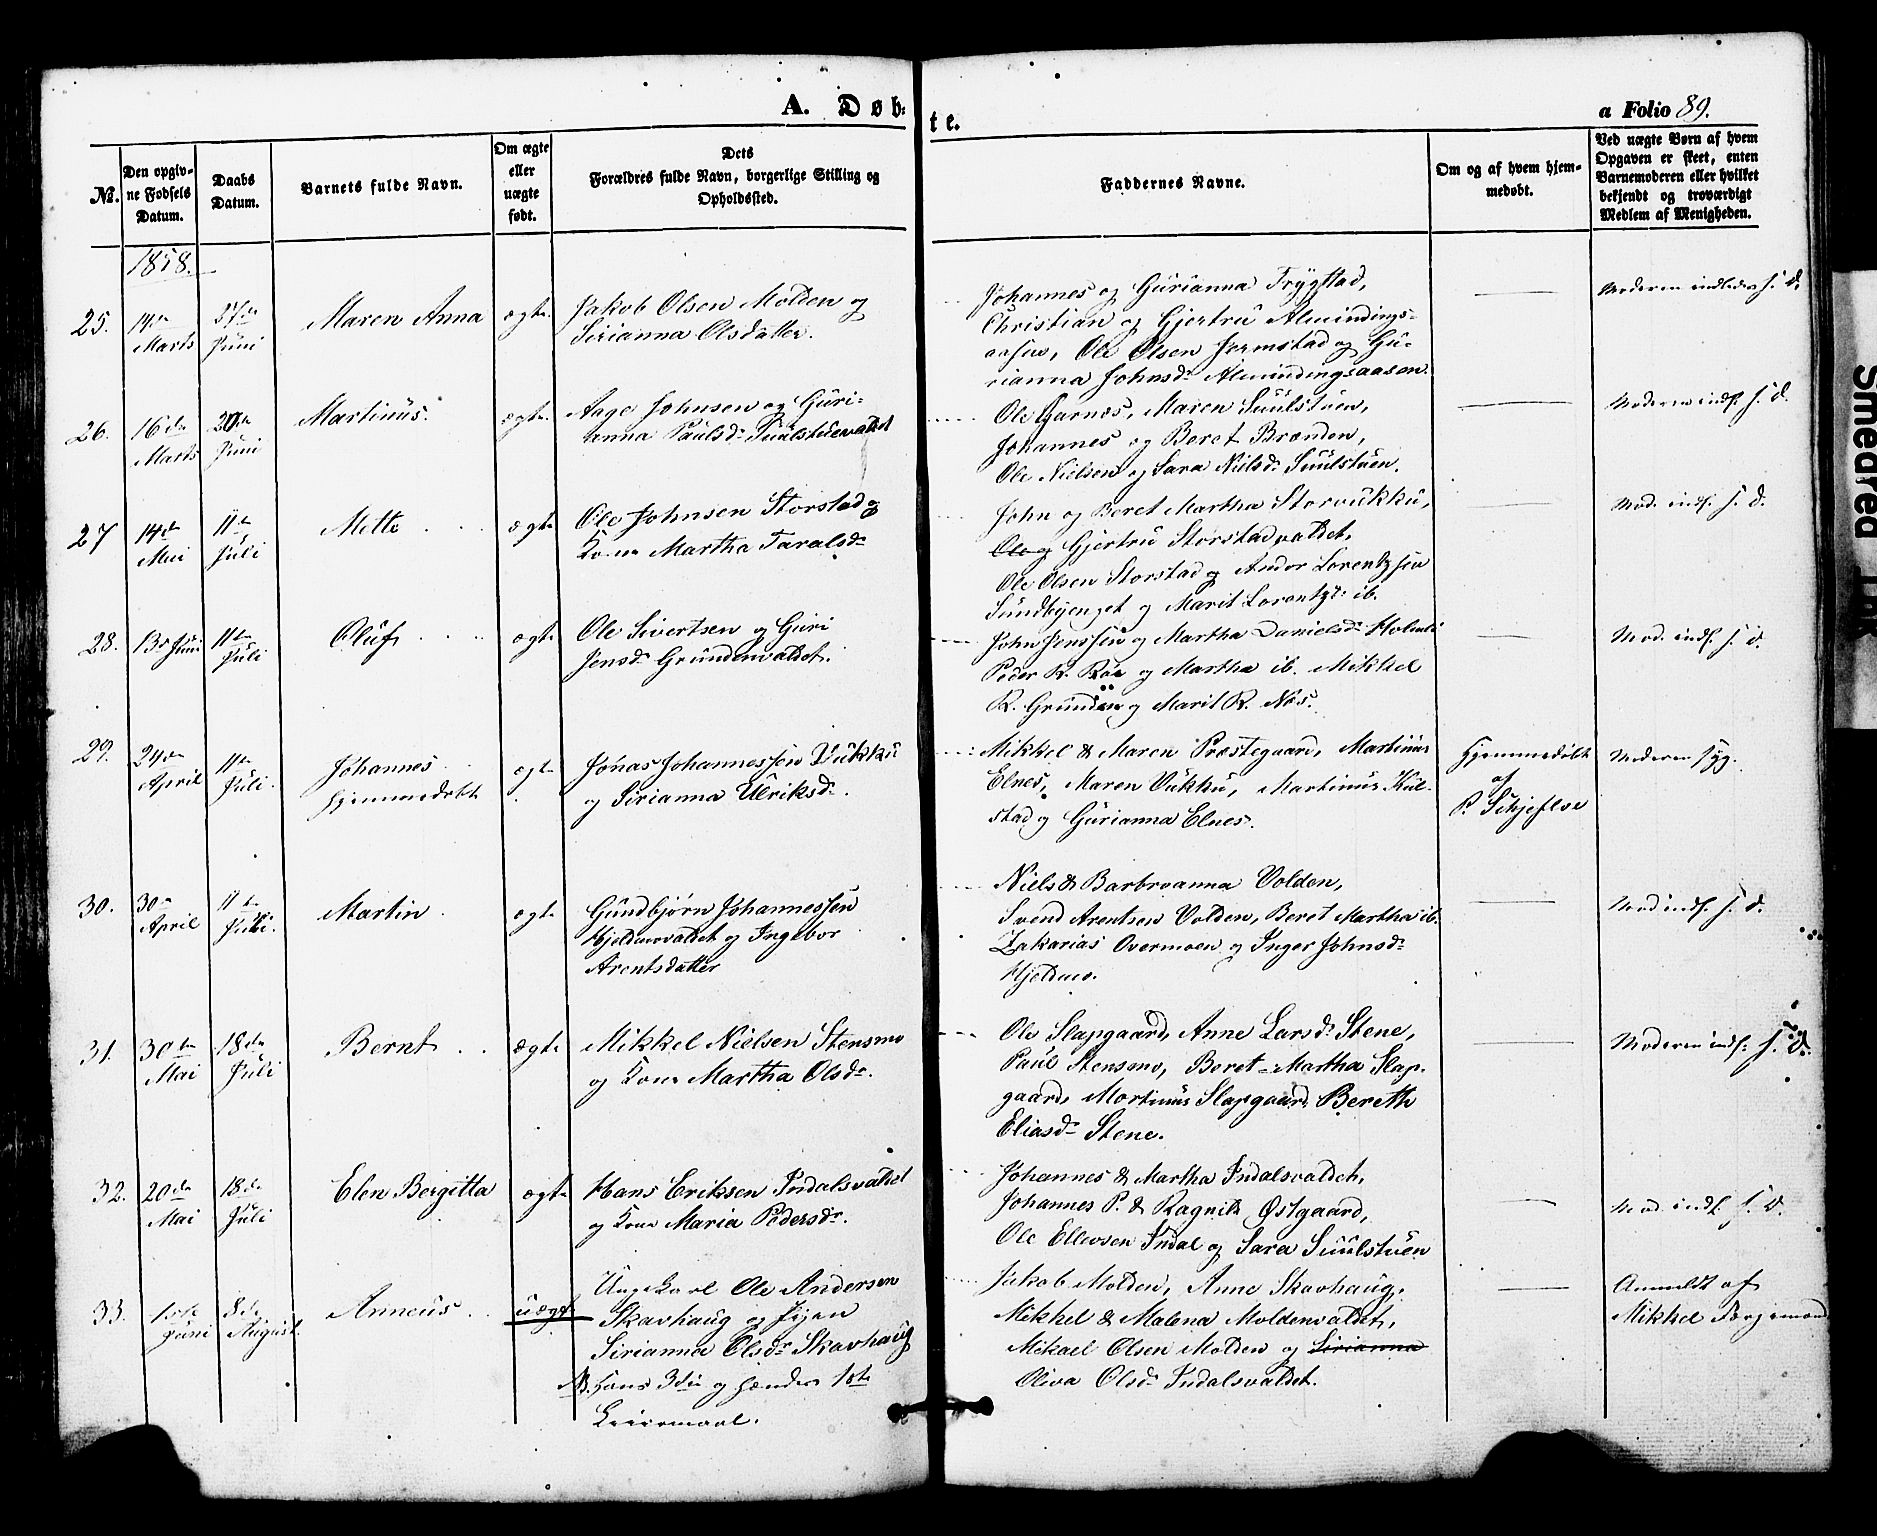 A. Døb-
te.
a Folio 89.
No.
Den opgiv-
ne Fødsels
Datum.
Daabs
Datum.
Barnets fulde Navn.
Om ægte
eller
uægte
født.
Dets
Forældres fulde Navn, borgerlige Stilling og
Opholdssted.
Faddernes Navne.
Om og af hvem hjem-
medøbt.
Ved uægte Børn af hvem
Opgaven er skeet, enten
Barnemoderen eller hvilket
bekjendt og troværdigt
Medlem af Menigheden.
1858.
25.
14de
Marts
27de
Juni
Maren Anna
ægte
Jakob Olsen Molden og
Sirianna Olsdatter.
Johannes og Gurianna Trygstad,
Christian og Gjertru Almindings-
aasen, Ole Olsen Jermstad og Gu-
rianna Johnsdr Almindingsaasen.
Moderen indledes s. d.
26.
16de
Marts
20de
Juni
Martinus.
ægte.
Aage Johnsen og Guri-
anna Paulsdr Suulstuevaldet
Ole Garnæs, Maren Suulstuen,
Johannes og Beret Brænden,
Ole Nielsen og Sara Nielsdr Suulstuen.
Moderen indl. s. d.
27
14de
Mai
11te
Juli
Mette
ægte
Ole Johnsen Storstad og
Kone Martha Taralsdr
John og Beret Martha Storvukku,
Ole og Gjertru Storstadvaldet,
Ole Olsen Storstad og Andor Lorentzsen
Sundbyenget og Marit Lorentzdr ib.
Mod. indl. s. d.
28.
13 Juni
11te
Juli
Oluf
ægte
Ole Sivertsen og Guri
Jensdr Grundenvaldet.
John Jenssen og Martha Danielsdr Holmli
Peder R. Røe og Martha ib. Mikkel
R. Grunden og Marit R. Næs.
Mod. indl. s. d.
29.
24de
April
11te
Juli.
Johannes
hjemmedøbt
ægte
Jonas Johannessen Vukku
og Sirianna Ulriksdr.
Mikkel & Maren Præstegaard, Martinus
Elnes, Maren Vukku, Martinus Kul-
stad og Gurianna Elnes.
Hjemmedøbt
af
P. Skjeflo
Moderen syg.
30.
30te
April
11te
Juli.
Martin
ægte
Gundbjørn Johannessen
Hjeldmovaldet og Ingebor
Arentsdatter
Niels & Barbroanna Volden,
Svend Arentsen Volden, Beret Martha ib.
Zakarias Overmoen og Inger Johnsdr
Hjeldmo.
Mod indl. s. d.
31.
30te
Mai
18de
Juli
Bernt
ægte
Mikkel Nielsen Stensmo
og Kone Martha Olsdr.
Ole Slapgaard, Anne Larsdr Stene,
Paul Stensmo, Beret-Martha Slap-
gaard, Martinus Slapgaard, Bereth
Eliasdr Stene.
Moderen indl. s. d.
32.
20de
Mai
18de
Juli
Elen Bergitta
ægte
Hans Eriksen Indalsvaldet
og Kone Maria Pedersdr.
Johannes & Martha Indalsvaldet,
Johannes P. & Ragnild Østgaard,
Ole Ellevsen Indal og Sara Suulstuen
Mod. indl. s. d.
33.
1ste
Juni
8de
August.
Anneus
uægte
Ungekarl Ole Andersen
Skavhaug og Pigen
Sirianna Olsdr Skavhaug
NB. Hans 3die og hendes 1ste
Leiermaal.
Jakob Molden, Anne Skavhaug,
Mikkel & Malena Moldenvaldet,
Mikael Olsen Molden og Sirianna
Oliva Olsdr Indalsvaldet.
Anmeldt af
Mikkel Færgemand
Smedfed